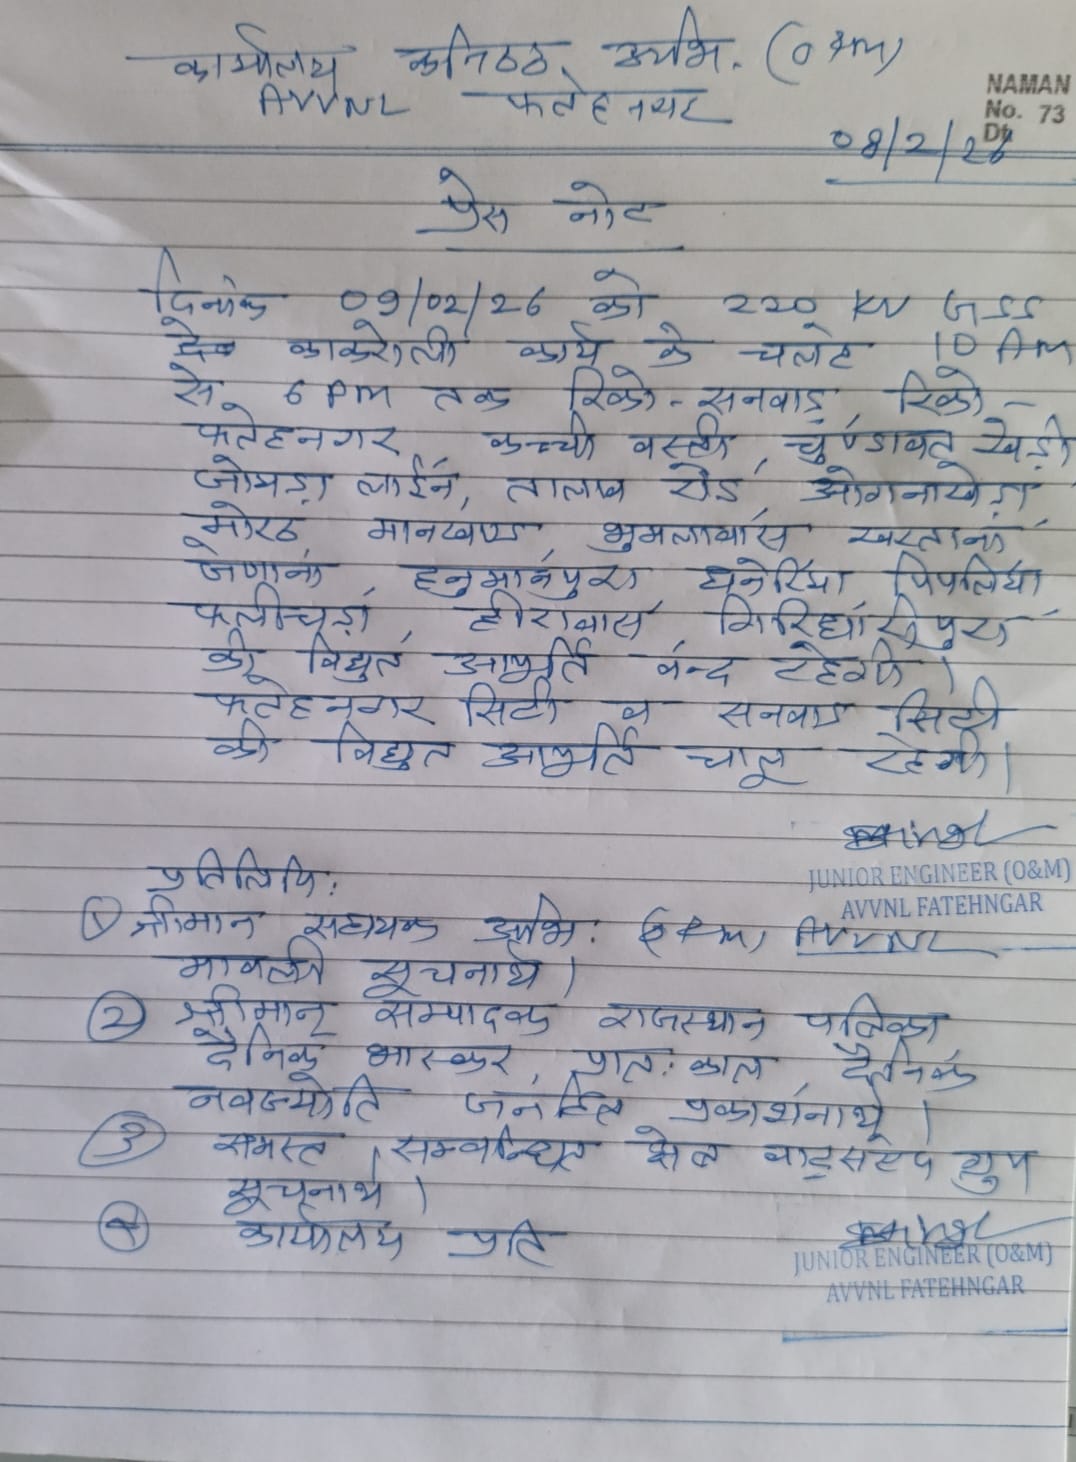 कार्यालय कनिष्ठ अभि. (O&M)
AVVNL फतेहनगर
NAMAN
No. 73
Dt.
08/2/26
प्रेस नोट
दिनांक 09/02/26 को 220 KV GSS
काकरोली कार्य के चलते 10 AM
से 6 PM तक रिको-सनवाड़, रिको-
फतेहनगर, कच्ची बस्ती, चुण्डावत खेड़ी
लाईन, तालाब रोड,
मोरठ मानखण्ड,
हनुमानपुरा, घनेरिया पिपलिया
फलीचड़ा, हीरावास, गिरिधारीपुरा
की विद्युत आपूर्ति बन्द रहेगी।
फतेहनगर सिटी व सनवाड सिटी
की विद्युत आपूर्ति चालू रहेगी।
JUNIOR ENGINEER (O&M)
AVVNL FATEHNGAR
प्रतिलिपि:
① श्रीमान सहायक अभि: (O&M) AVVNL
मावली सूचनार्थ।
② श्रीमान् सम्पादक राजस्थान पत्रिका
दैनिक भास्कर, प्रात:काल दैनिक
नवज्योति जनहित प्रकाशनार्थ।
③ समस्त सम्बन्धित क्षेत्र वाट्सएप ग्रुप
सूचनार्थ।
④ कार्यालय प्रति
JUNIOR ENGINEER (O&M)
AVVNL FATEHNGAR